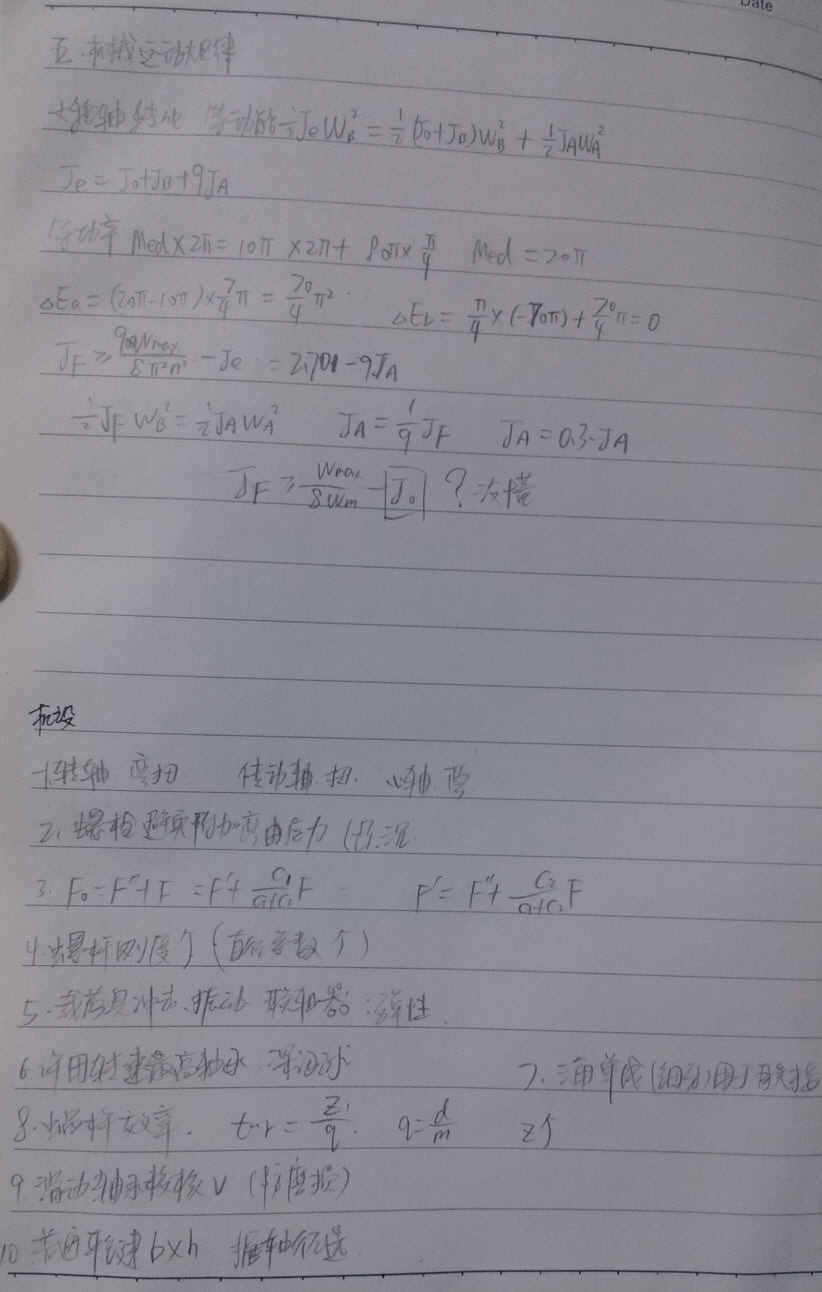 Date
五.机械运动规律
大轮轴转化 等动能 ½JeW_B² = ½(J₀+J_B)W_B² + ½J_AW_A²
Je = J₀+J_B+9J_A
等功率 Med×2π = 10π×2π + 80π×π/4 Med = 20π
△Ea = (20π-10π)×7/4π = 70/4π² △Eb = π/4×(-70π)+70/4π = 0
J_F ≥ 900Wmax/8π²n² - Je = 2.701-9J_A
½J_F W_B² = ½J_A W_A² J_A = 1/9 J_F J_A = 0.3-J_A
J_F ≥ Wmax/8Wm - J₀ ? 没懂
机设
1.转轴 弯扭 传动轴 扭. 心轴 弯
2. 螺栓 避免附加弯曲应力 沉
3. F₀ = F″+F = F′+ C₁/C₁+C₂ F F′ = F″+ C₂/C₁+C₂ F
4.蜗杆刚度个 (直径系数个)
5.载荷具冲击、振动 联轴器:弹性
6.许用转速最高轴承 深沟球
7.三角单线(细牙)用于联接
8.蜗杆效率. tanr = Z₁/q. q = d/m Z个
9.滑动轴承校核V (防磨损)
10 普通平键b×h 据轴径选